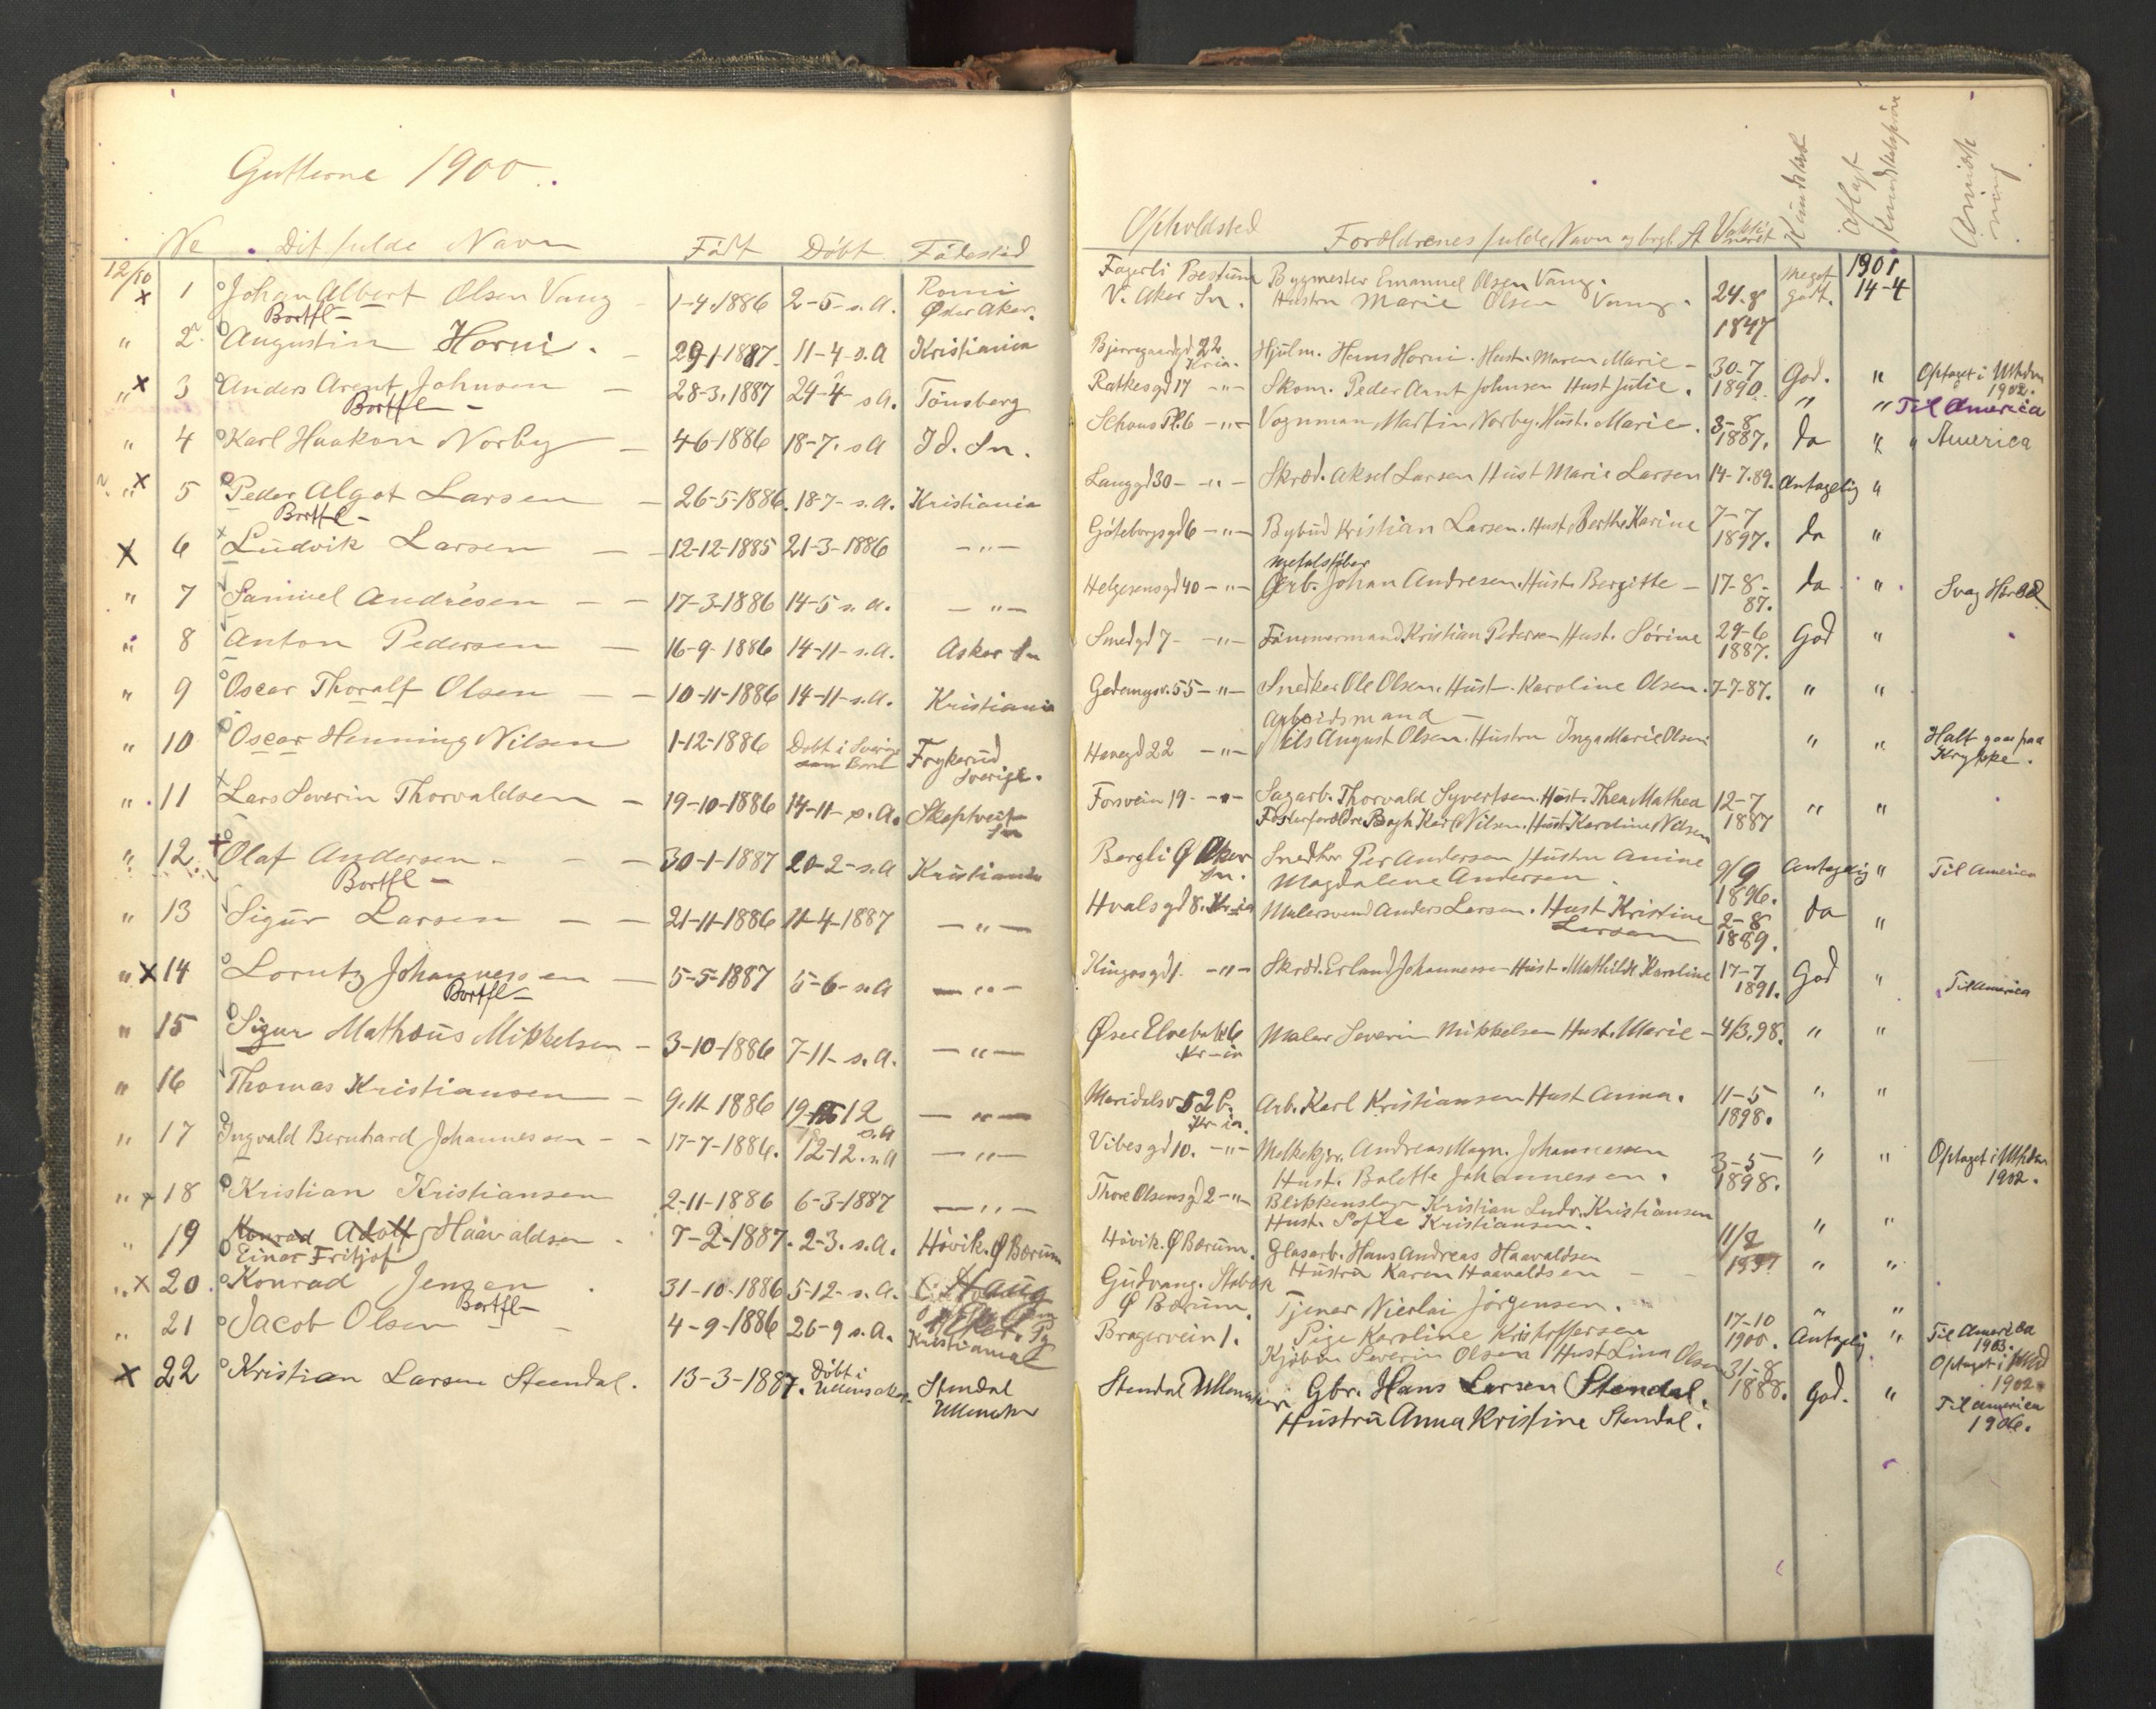 Gutterne 1900.
No Dit fulde Navn Födt Döbt Födested
12/10 x 1 Johan Albert Olsen Vang 1-4-1886 2-5- s.A. Romi Øster Aker.
Bortfl-
" 2 Augustin Horni. 29-1-1887 11-4-s.A Kristiania
" x 3 Anders Arent Johnsen 28-3-1887 24-4- s.A. Tönsberg
Bortfl-
" 4 Karl Haakon Norby 4-6-1886 18-7. s.A Id. Sn.
" x 5 Peder Algot Larsen 26-5-1886. 18-7- s.A. Kristiania
Bortfl-
x 6 Ludvik Larsen 12-12-1885 21-3-1886 -"-
" 7 Samuel Andrésen 17-3-1886 14-5 s.A. -"-
" 8 Anton Pedersen 16-9-1886 14-11-s.A. Asker Sn
" 9 Oscar Thoralf Olsen 10-11-1886 14-11-s.A. Kristiania
" 10 Oscar Henning Nilsen 1-12-1886 Döbt i Sverige som Barn Frykerud Sverige.
" 11 Lars Severin Thorvaldsen 19-10-1886 14-11-s.A. Skeptveit Sn
" 12. Olaf Andersen 30-1-1887 20-2-s.A Kristiania
Bortfl-
" 13 Sigur Larsen 21-11-1886 11-4-1887 -"-
" x 14 Lorntz Johannessen 5-5-1887 5-6-s.A -"-
Bortfl-
" 15 Sigur Mathæus Mikkelsen 3-10-1886 7-11-s.A. -"-
" 16 Thomas Kristiansen 9-11-1886 19-12 s.A -"-
" 17 Ingvald Bernhard Johannessen 17-7-1886. 12-12.s.A -"-
" x 18 Kristian Kristiansen 2-11-1886 6-3-1887 -"-
" 19 Konrad Adolf Haavaldsen 7-2-1887. 2-3. s.A. Hövik. Ø Bærum
Einar Fritjof
" x 20. Konrad Jensen 31-10-1886 5-12-s.A. Haug
Bortfl-
" 21 Jacob Olsen 4-9-1886 26-9 s.A. Kristiania
x 22 Kristian Larsen Stendal. 13-3-1887. Döbt i Ullensaker Stendal Ullensaker
Opholdsted Forældrenes fulde Navn og brgl. St Vaksineret Kundskab Aflagt Kundskabspröve Anmerkning
Fagerli Bestum Bygmester Emanuel Olsen Vang. Meget 1901
V. Aker Sn. Hustru Marie Olsen Vang. 24-8 1847 godt. 14-4
Bjerregaardgd 22 Kria. Hjulm. Hans Horni. Hust. Maren Marie - 30-7 1890 God. " Optaget i Mhdn 1902.
Ratkesgd 17 -"- Skom. Peder Arnt Johnsen Hust Julie. " " Til America
Schous Pl. 6 -"- Vognman Martin Norby. Hust. Marie. 3-8 1887. do " America
Langgd 30- -"- Skræd. Aksel Larsen Hust Marie Larsen 14-7.89. Antagelig "
Göteborgsgd 6 -"- Bybud Kristian Larsen. Hust. Berthe Karine 7-7 1897. do "
Metalstöber
Helgesensgd 40 -"- Arb. Johan Andresen. Hust. Bergitte - 17-8-87. do " Svag Hörsel
Smedgd 7- -"- Tömmermand Kristian Pedersen Hust. Sörine 29-6 1887. God "
55 -"- Snedker Ole Olsen. Hust. Karoline Olsen. 7-7-87. " "
Arbeidsmand
22 -"- Nils August Olsen. Hustru Inga Marie Olsen " " Halt gaar paa Krykke.
Fosvein 19- -"- Sagarb. Thorvald Syvertsen. Hust. Thea Mathea 12-7 1887 " "
Fosterforældre Karl Nilsen. Hust. Karoline Nilsen
Bergli Ø Aker Sn. Snedker Per Andersen Hustru Anine 9/9 1896. Antagelig " Til America
Magdalene Andersen.
Hvalsgd 8. Kr-ia Malersvend Anders Larsen. Hust Kristine Larsen 2-8 1889. do "
Kingosgd 1. -"- Skræd. Erland Johannessen Hust. Mathilde Karoline 17-7 1891. God " Til America
6 Kr-ia Maler Severin Mikkelsen Hust. Marie - 4/3.98. " "
Maridalsv 52 b. Kr-ia. Arb. Karl Kristiansen Hust Anna. 11-5 1898. " "
Vibesgd 10. -"- Andreas Magn. Johannessen
Hust. Balette Johannessen. 3-5 1898. " " Optaget i Mhdn 1902.
Thore Olsensgd 2 -"- Blikkenslager Kristian Ludv. Kristiansen
Hust. Sofie Kristiansen. " "
Hövik. Ø Bærum. Glasarb. Hans Andreas Haavaldsen
Hustru Karen Haavaldsen " "
Gudvang. Stabæk
Ø Bærum. Tjener Nicolai Jörgensen.
Pige Karoline Kristoffersen 17-10 1900. Antagelig " Til America 1903.
Bragervein 1. Kjöbm Severin Olsen Hust Lina Olsen 31-8 1888. Optaget i Mhd 1902.
Stendal Ullensaker Gbr. Hans Larsen Stendal. God. " Til America 1906.
Hustru Anna Kristine Stendal.